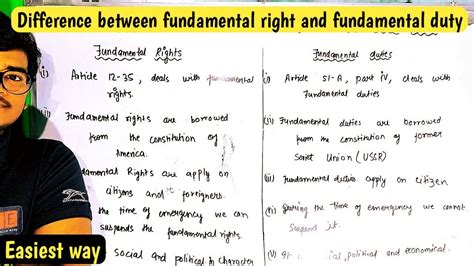 Difference between fundamental right and fundamental duty
Fundamental Rights
Article 12-35, deals with fundamental
rights.
Fundamental rights are borrowed
from the constitution of
America.
damental Rights are apply on
citizens and foreigners.
the time of emergency we can
suspends the fundamental rights.
Social and political in character
Fundamental duties
(i) Article 51-A, part iv, deals with
Fundamental duties
(ii) Fundamental duties are borrowed
from the constitution of former
Soviet Union (USSR)
(iii) Fundamental duties apply on citizen
During the time of emergency we cannot
suspend it.
(v) social, political and economical.
Easiest way